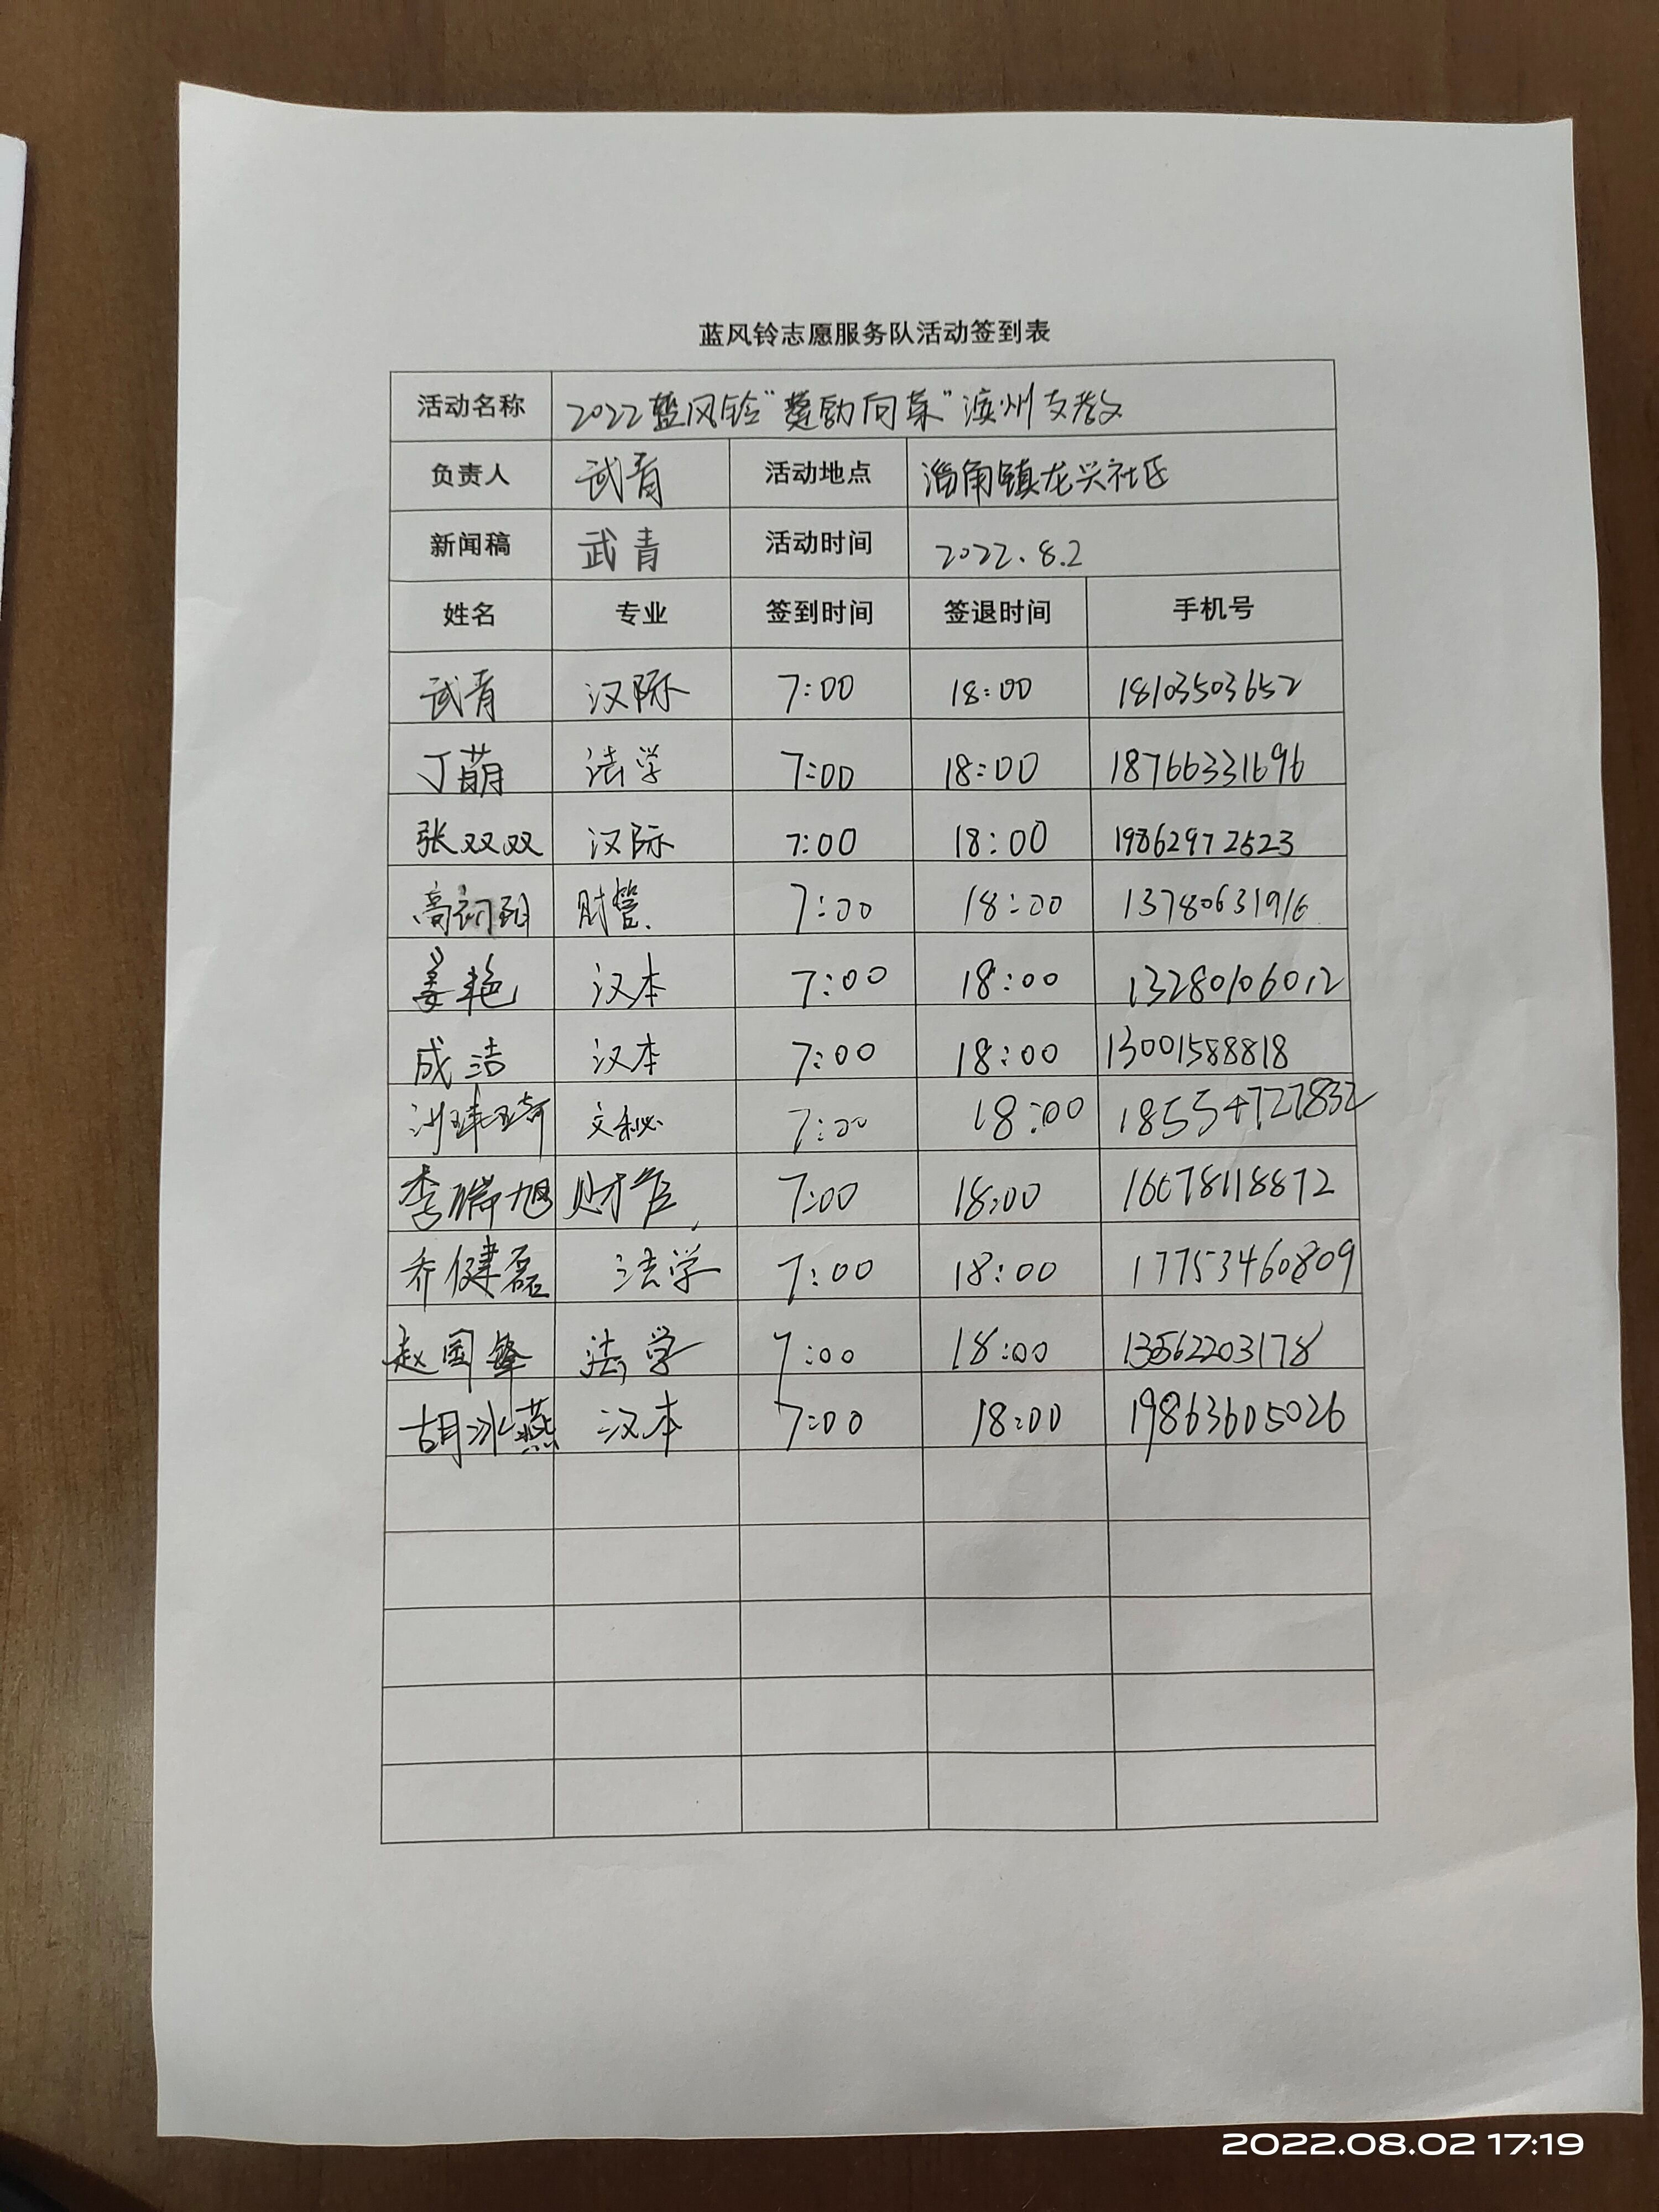 蓝风铃志愿服务队活动签到表
活动名称 2022蓝风铃“ 向 ”滨州支教
负责人 武青 活动地点 淄角镇龙兴社区
新闻稿 武青 活动时间 2022.8.2
姓名 专业 签到时间 签退时间 手机号
武青 汉际 7:00 18:00 18103503652
丁萌 法学 7:00 18:00 18766331696
张双双 汉际 7:00 18:00 19862972523
高 财管. 7:00 18:00 13780631916
姜艳 汉本 7:00 18:00 13280106012
成洁 汉本 7:00 18:00 13001588818
文秘 7:00 18:00 18554727832
李瑞旭 财管 7:00 18:00 16678118872
乔健磊 法学 7:00 18:00 17753460809
赵国锋 法学 7:00 18:00
胡冰燕 汉本 7:00 18:00 19863605026
2022.08.02 17:19